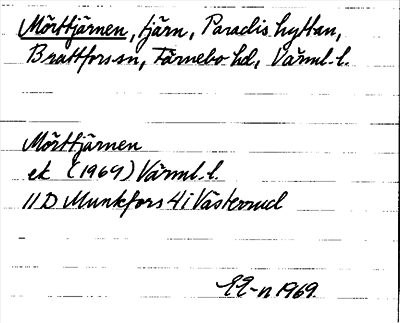 Mörttjärnen, tjärn, Paradishyttan,
Brattfors sn, Färnebo hd, Värml. l.
Mörttjärnen
ek (1969) Värml. l.
11D Munkfors 4i Västerrud
EE-n 1969.